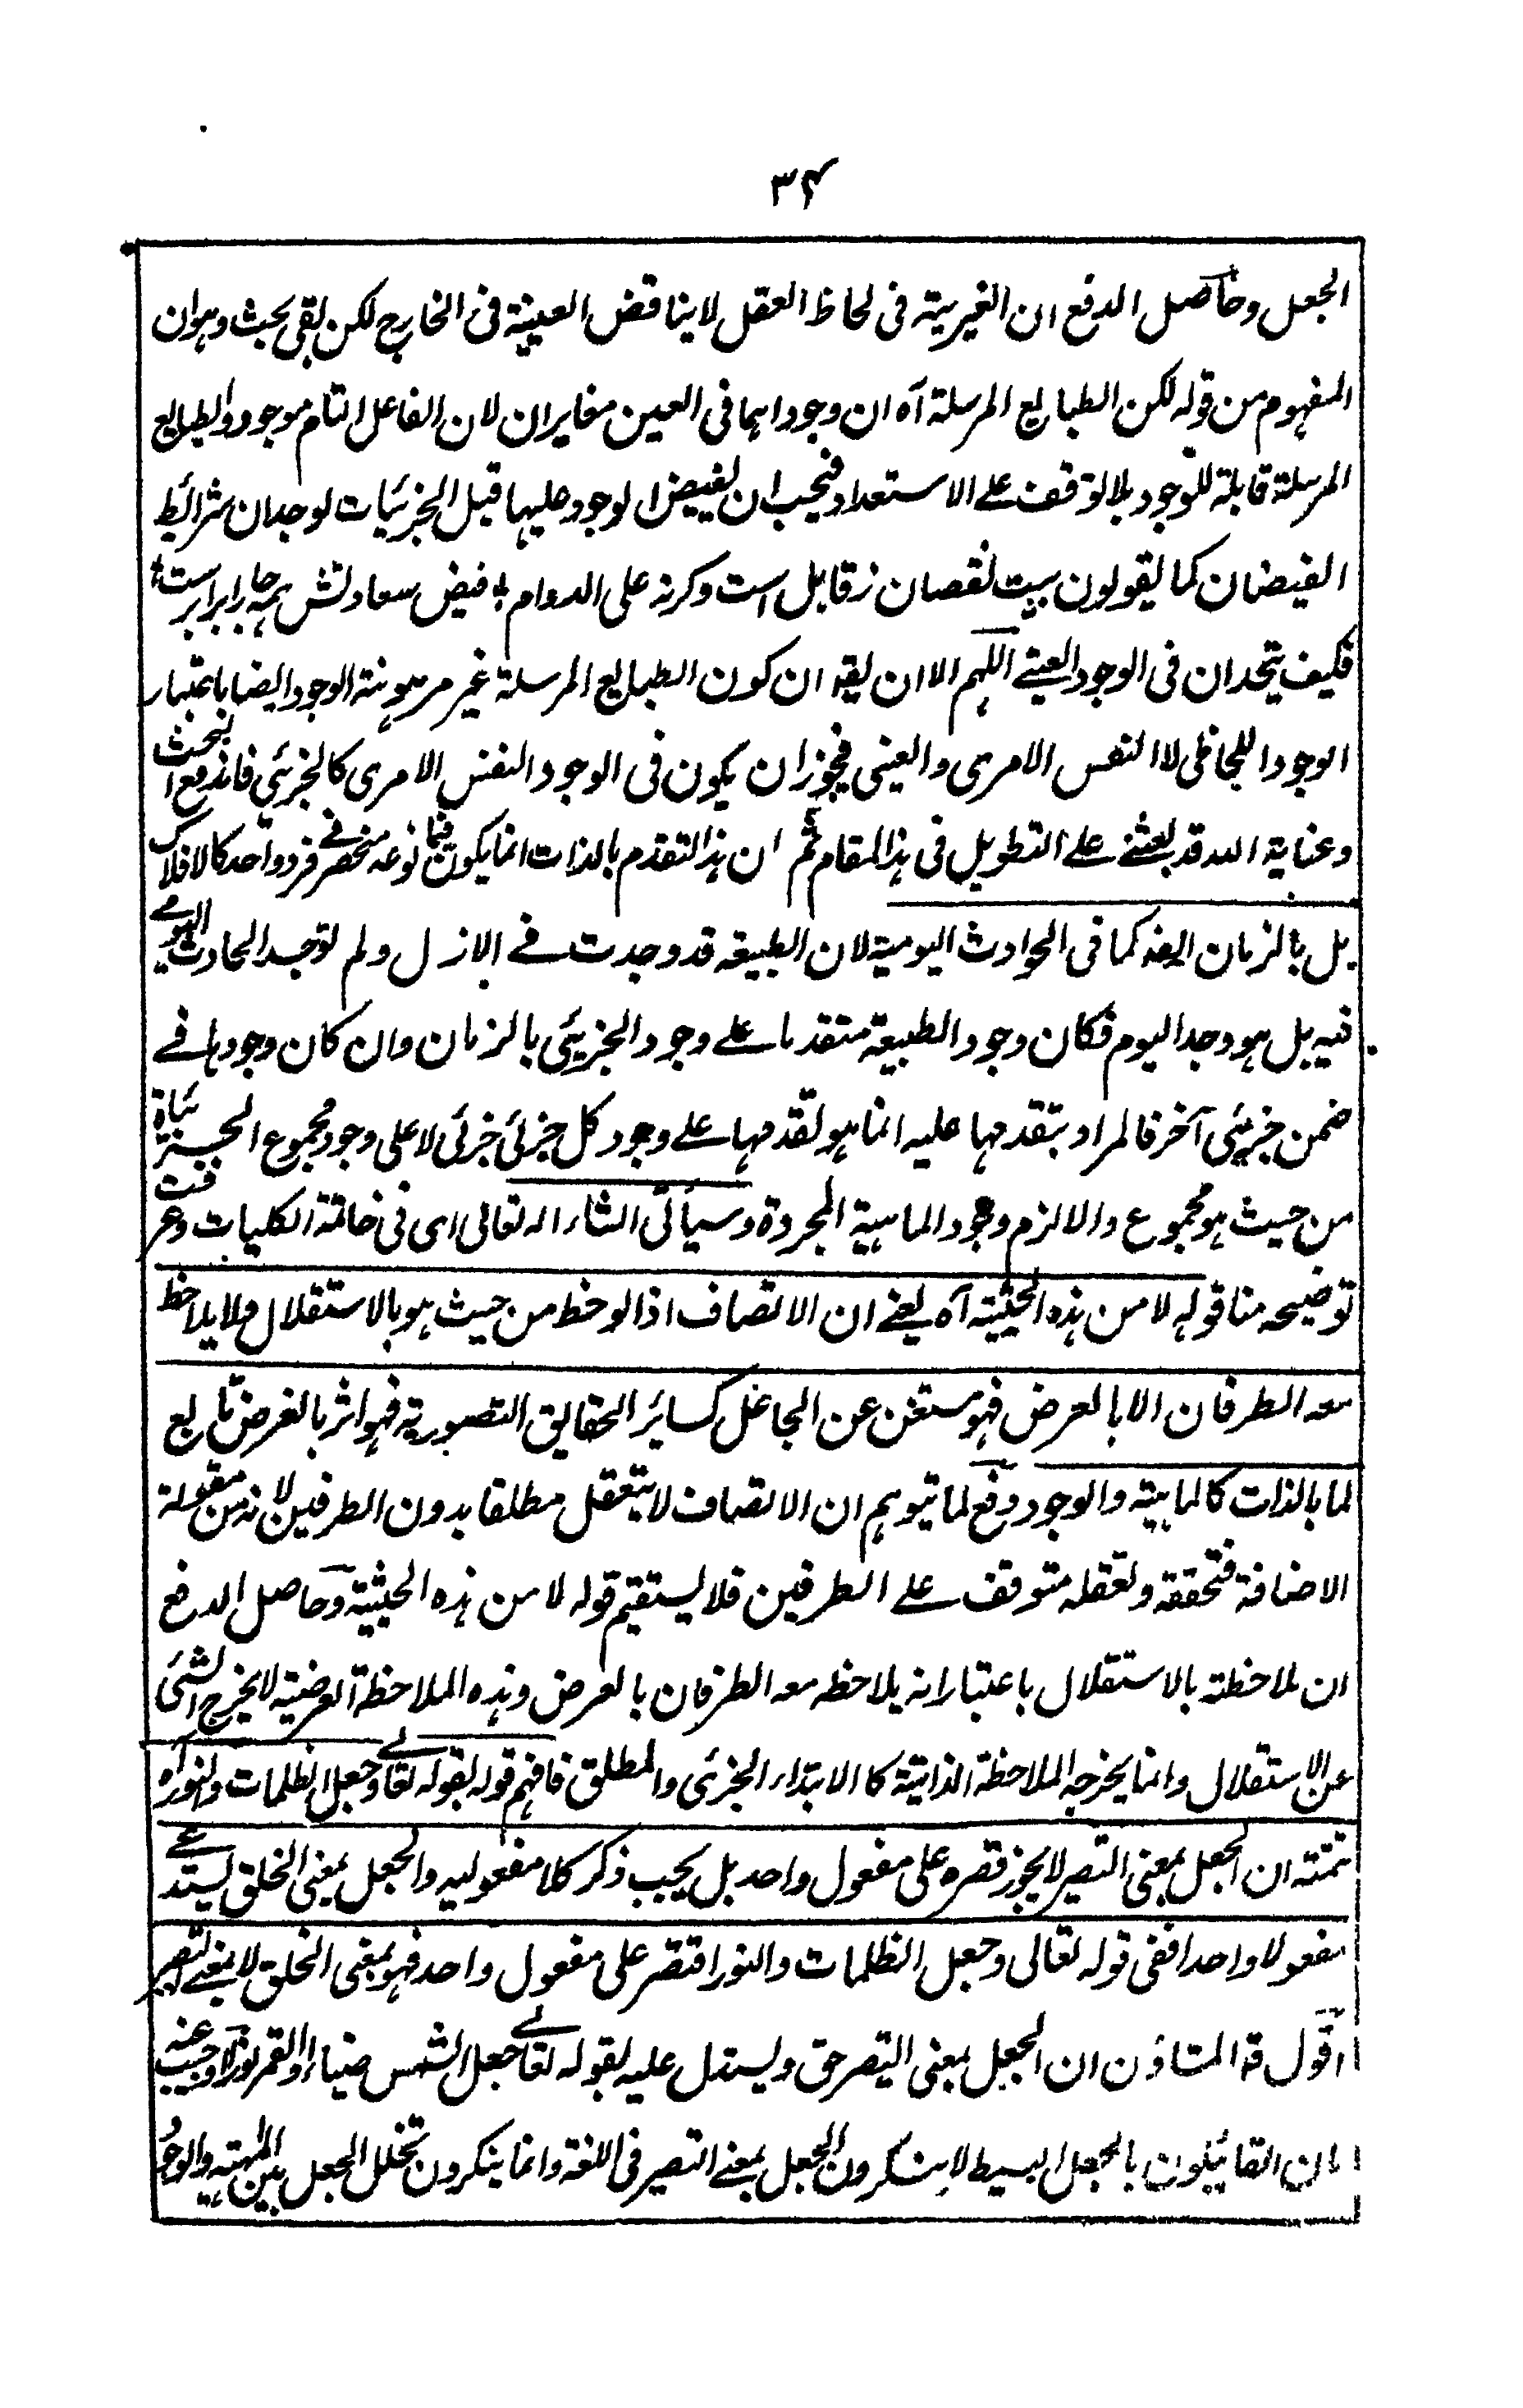 ٣٤
الجعل وحاصل الدفع ان الغيرية فى لحاظ العقل لا يناقض العينية فى الخارج لكن بقى بحث وهو ان
المفهوم من قوله لكن الطبايع المرسلة آه ان وجوداهما فى العين مغايران لان الفاعل التام موجود والطبايع
المرسلة قابلة للوجود بلا توقف على الاستعداد فيجب ان يفيض الوجود عليها قبل الجزئيات لوجدان شرائط
الفيضان كما يقولون بيت نقصان ز قابل است وگرنه على الدوام ؛ فيض سعادتش همه جا برابر است ؛
فكيف يتحدان فى الوجود العينے اللهم الا ان يقہ ان كون الطبايع المرسلة غير مرهونة الوجود ايضا باعتبار
الوجود اللحاظى لا النفس الامرى والعينى فيجوز ان يكون فى الوجود النفس الامرى كالجزئي فاندفع البحث
وعناية الله قد بعثنے علے التطويل فى هذا المقام ثم ان هذا التقدم بالذات انما يكون فيما نوعه منحصر فے فرد واحد كالافلاك
بل بالزمان ايضہ كما فى الحوادث اليومية لان الطبيعة قد وجدت فے الازل ولم توجد الحادث اليومے
فيه بل هو وجد اليوم فكان وجود الطبيعة متقدما علے وجود الجزئي بالزمان وان كان وجودها فے
ضمن جزئي آخر فالمراد بتقدمها عليه انما هو تقدمها علے وجود كل جزئي جزئي لا على وجود مجموع الجزئيات
من حيث هو مجموع والا لزم وجود الماهية المجردة وسيأتى انشاء الله تعالى اى فى خاتمة الكليات وعرفت
توضيحه منا قوله لا من هذه الحيثية آه يعنے ان الاتصاف اذا لوحظ من حيث هو بالاستقلال ولا يلاحظ
معه الطرفان الا بالعرض فهو مستغن عن الجاعل كسائر الحقايق التصورية فهو اثر بالعرض تابع
لما بالذات كالماهية والوجود دفع لما يتوهم ان الاتصاف لا يتعقل مطلقا بدون الطرفين لانه من مقولة
الاضافة فتحققه وتعقله متوقف علے الطرفين فلا يستقيم قوله لا من هذه الحيثية وحاصل الدفع
ان ملاحظته بالاستقلال باعتبار انه يلاحظه معه الطرفان بالعرض وهذه الملاحظة العرضية لا يخرج الشئ
عن الاستقلال وانما يخرجه الملاحظة الذاتية كالابتداء الجزئى والمطلق فافهم قوله لقوله تعالے وجعل الظلمات والنور آه
تتمته ان الجعل بمعنى التصير لا يجوز قصره على مفعول واحد بل يجب ذكر كلا مفعوليه والجعل بمعنى الخلق يستدعے
مفعولا واحدا ففى قوله تعالى وجعل الظلمات والنور اقتصر على مفعول واحد فهو بمعنى الخلق لا بمعنے التصير
اقول قہ المشاؤن ان الجعل بمعنى التصير حق ويستدل عليه بقوله تعالے جعل الشمس ضياء والقمر نورا واجيب عنه
بان القائلون بالجعل البسيط لا ينكرون الجعل بمعنے التصير فى اللغة وانما ينكرون تخلل الجعل بين المهية والوجو